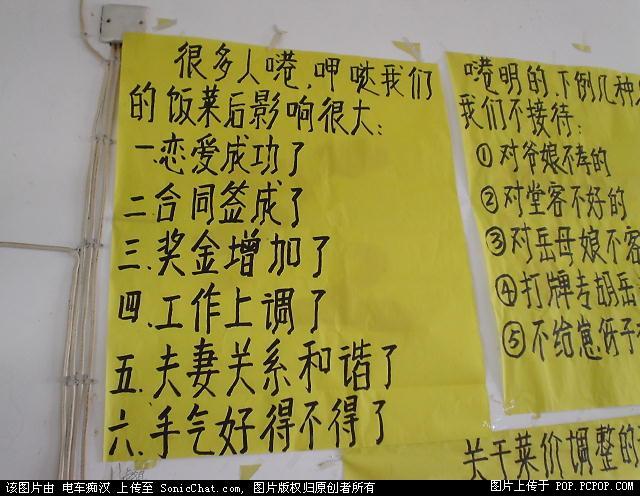 很多人嗯,呷哒我们
的饭菜后影响很大:
一.恋爱成功了
二.合同签成了
三.奖金增加了
四.工作上调了
五.夫妻关系和谐了
六.手气好得不得了
明的,下例几种
我们不接待:
①对爷娘不孝的
②对堂客不好的
③对岳母娘不客
④打牌专胡岳
⑤不给崽伢子
关于菜价调整的
该图片由 电车痴汉 上传至 SonicChat.com, 图片版权归原创者所有
图片上传于 POP.PCPOP.COM